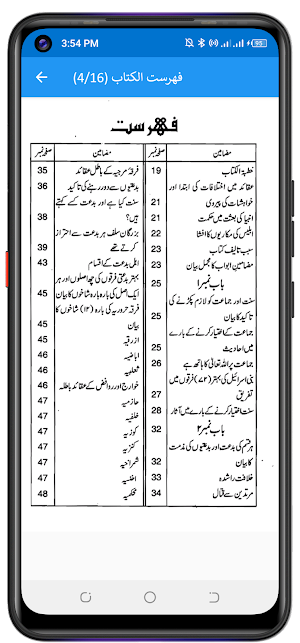 3:54 PM
95
فہرست الکتاب (4/16)
فہرست
مضامین صفحہ نمبر
خطبۃ الکتاب 19
عقائد میں اختلافات کی ابتدا اور
خواہشات کی پیروی 21
انبیا کی بعثت میں حکمت 21
ابلیس کی مکاریوں کا افشا 22
سبب تالیف کتاب 23
مضامین ابواب کا مجمل بیان 23
باب نمبر ۱ 25
سنت اور جماعت کو لازم پکڑنے کی
تاکید کا بیان 25
جماعت کے اختیار کرنے کے بارے
میں احادیث 25
جماعت پر اللہ تعالیٰ کا ہاتھ ہے 26
بنی اسرائیل کی بہتر (۷۲) فرقوں میں
تفریق 27
سنت اختیار کرنے کے بارے میں آثار 28
باب نمبر ۲ 32
ہر قسم کی بدعت اور بدعتیوں کی مذمت
کا بیان 32
خلافت راشدہ 33
مرتدین سے قتال 34
مضامین صفحہ نمبر
فرقۂ مرجیہ کے باطل عقائد 35
بدعتیوں سے دور رہنے کی تاکید 36
سنت کیا ہے اور بدعت کسے کہتے
ہیں؟ 38
بزرگان سلف ہر بدعت سے احتراز
کرتے تھے 39
اہل بدعت کے اقسام 43
بہتر بدعتی فرقوں کی چھ اصلوں اور ہر
ایک اصل کی بارہ بارہ شاخوں کا بیان
فرقہ حروریہ کی بارہ (۱۲) شاخوں کا
بیان 45
ازرقیہ 45
اباضیہ 46
ثعلبیہ 46
خوارج اور روافض کے عقائد باطلہ 46
حازمیہ 46
خلفیہ 47
کوزیہ 47
کنزیہ 47
شمراخیہ 47
اخنسیہ 47
محکمیہ 48